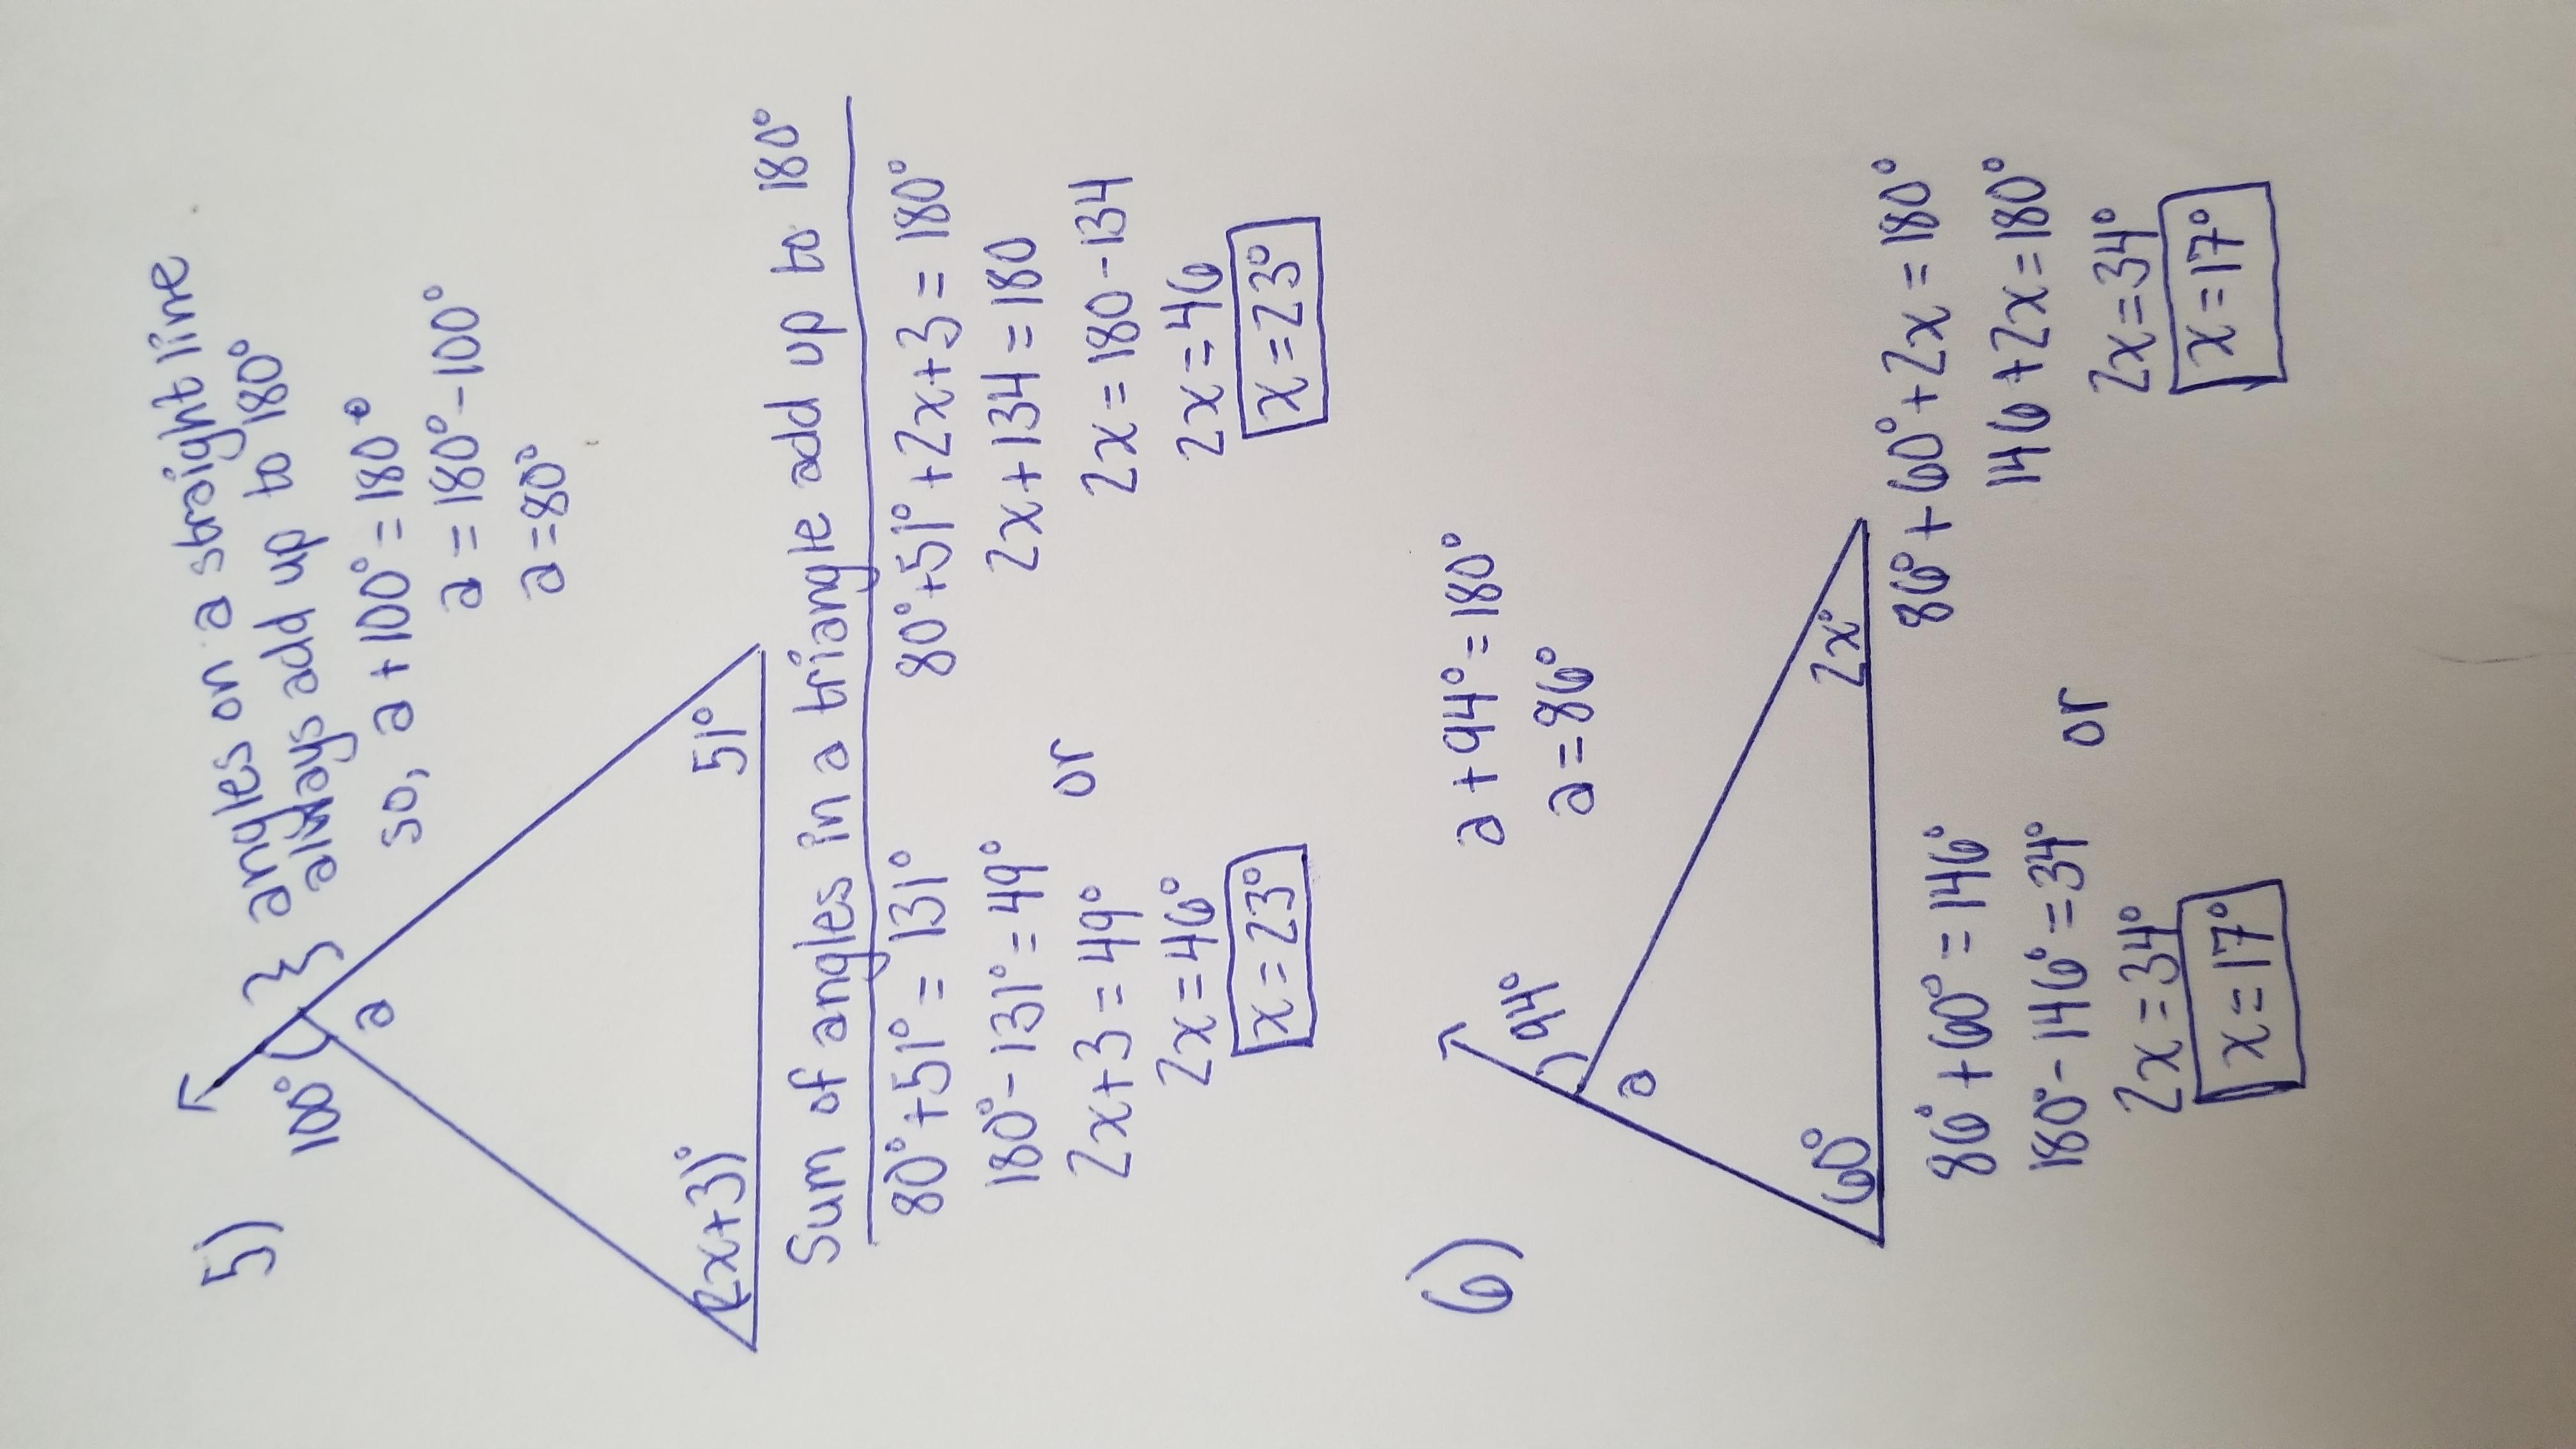 5)
100°
a
} angles on a straight line
always add up to 180°
so, a + 100° = 180°
a = 180° - 100°
a = 80°
(2x+3)°
51°
Sum of angles in a triangle add up to 180°
80° + 51° = 131°
180° - 131° = 49°
2x + 3 = 49°
2x = 46°
x = 23°
or
80° + 51° + 2x + 3 = 180°
2x + 134 = 180
2x = 180 - 134
2x = 46
x = 23°
6)
94°
a
a + 94° = 180°
a = 86°
60°
2x°
86° + 60° = 146°
180° - 146° = 34°
2x = 34°
x = 17°
or
86° + 60° + 2x = 180°
146 + 2x = 180°
2x = 34°
x = 17°